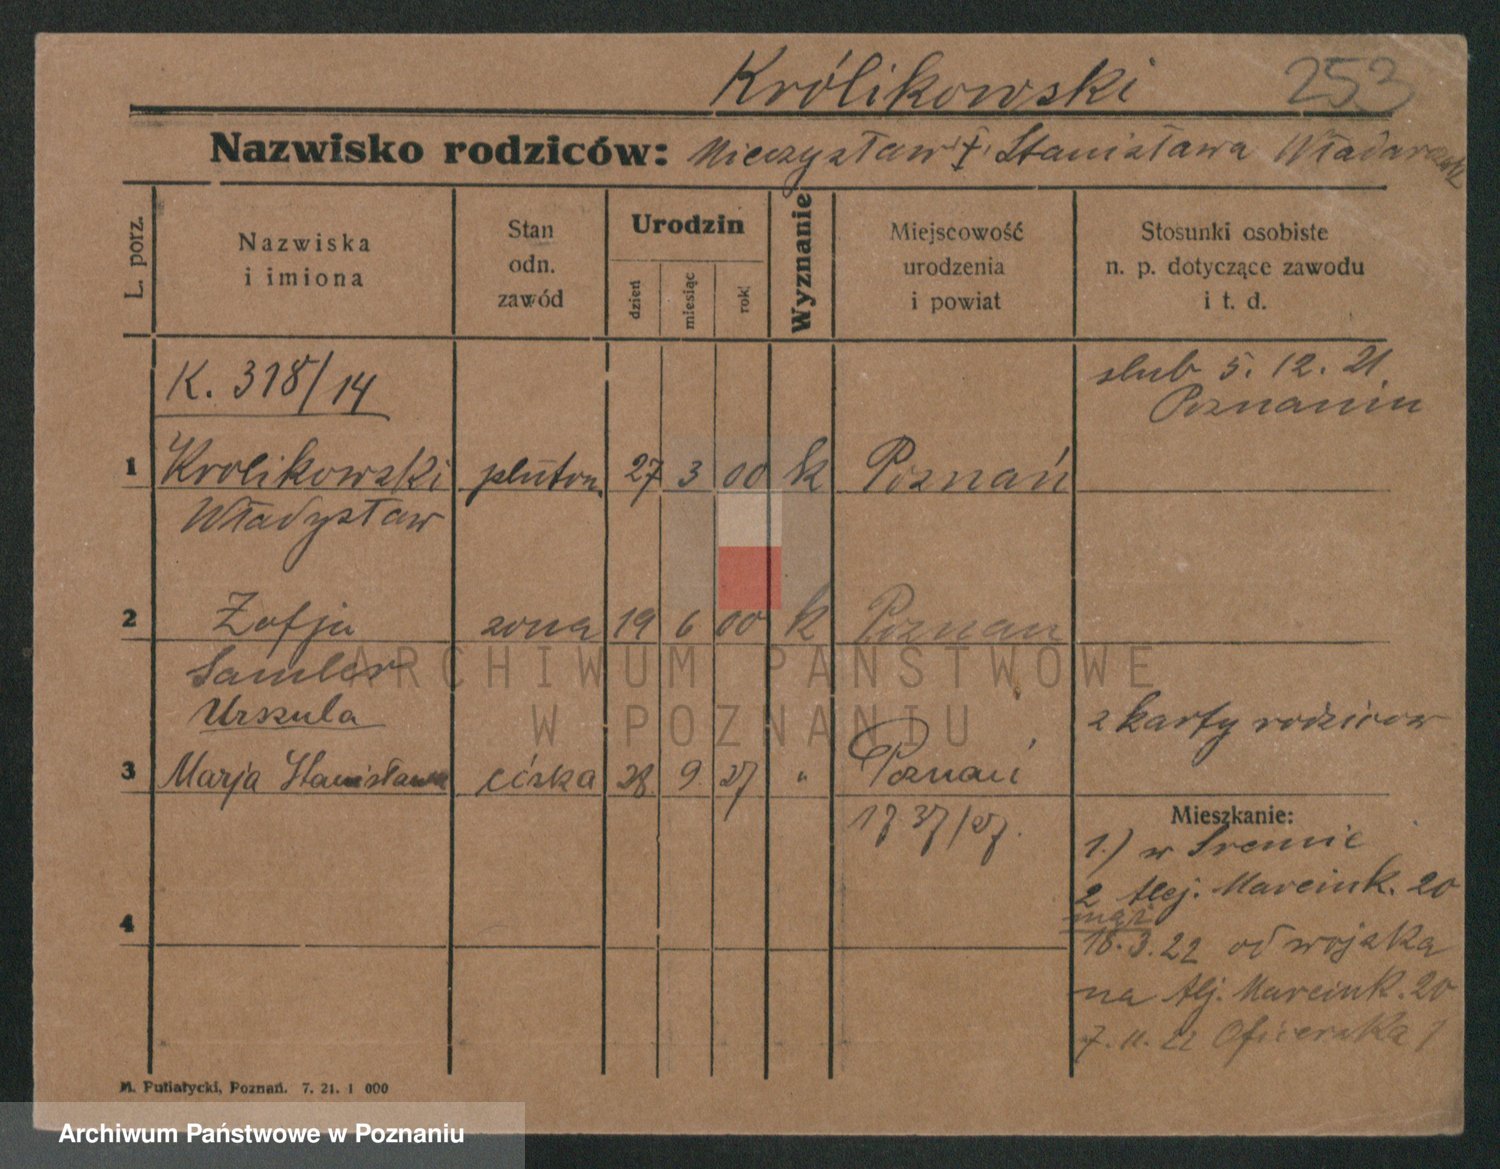 Królikowski 253
Nazwisko rodziców: Mieczysław i Stanisława
L. porz.
Nazwiska
i imiona
Stan
odn.
zawód
Urodzin
dzień
miesiąc
rok
Wyznanie
Miejscowość
urodzenia
i powiat
Stosunki osobiste
n. p. dotyczące zawodu
i t. d.
K. 318/14
slub 5. 12. 21.
Poznaniu
1 Krolikowski pluton. 27 3 00 k Poznań
Władysław
2 Zofja zona 19 6 00 k Poznan
Samler
Urszula
z karty rodzicow
3 Marja Stanisława córka 28. 9. 27 " Poznań
1737/27.
Mieszkanie:
1.) w Sremie
2 Alej. Marcink. 20
mąż
18. 3. 22 od wojska
na Alj. Marcink. 20
7. 11. 22 Oficerska 1
4
M. Putiatycki, Poznań. 7. 21. 1 000
ARCHIWUM PAŃSTWOWE
W POZNANIU
Archiwum Państwowe w Poznaniu